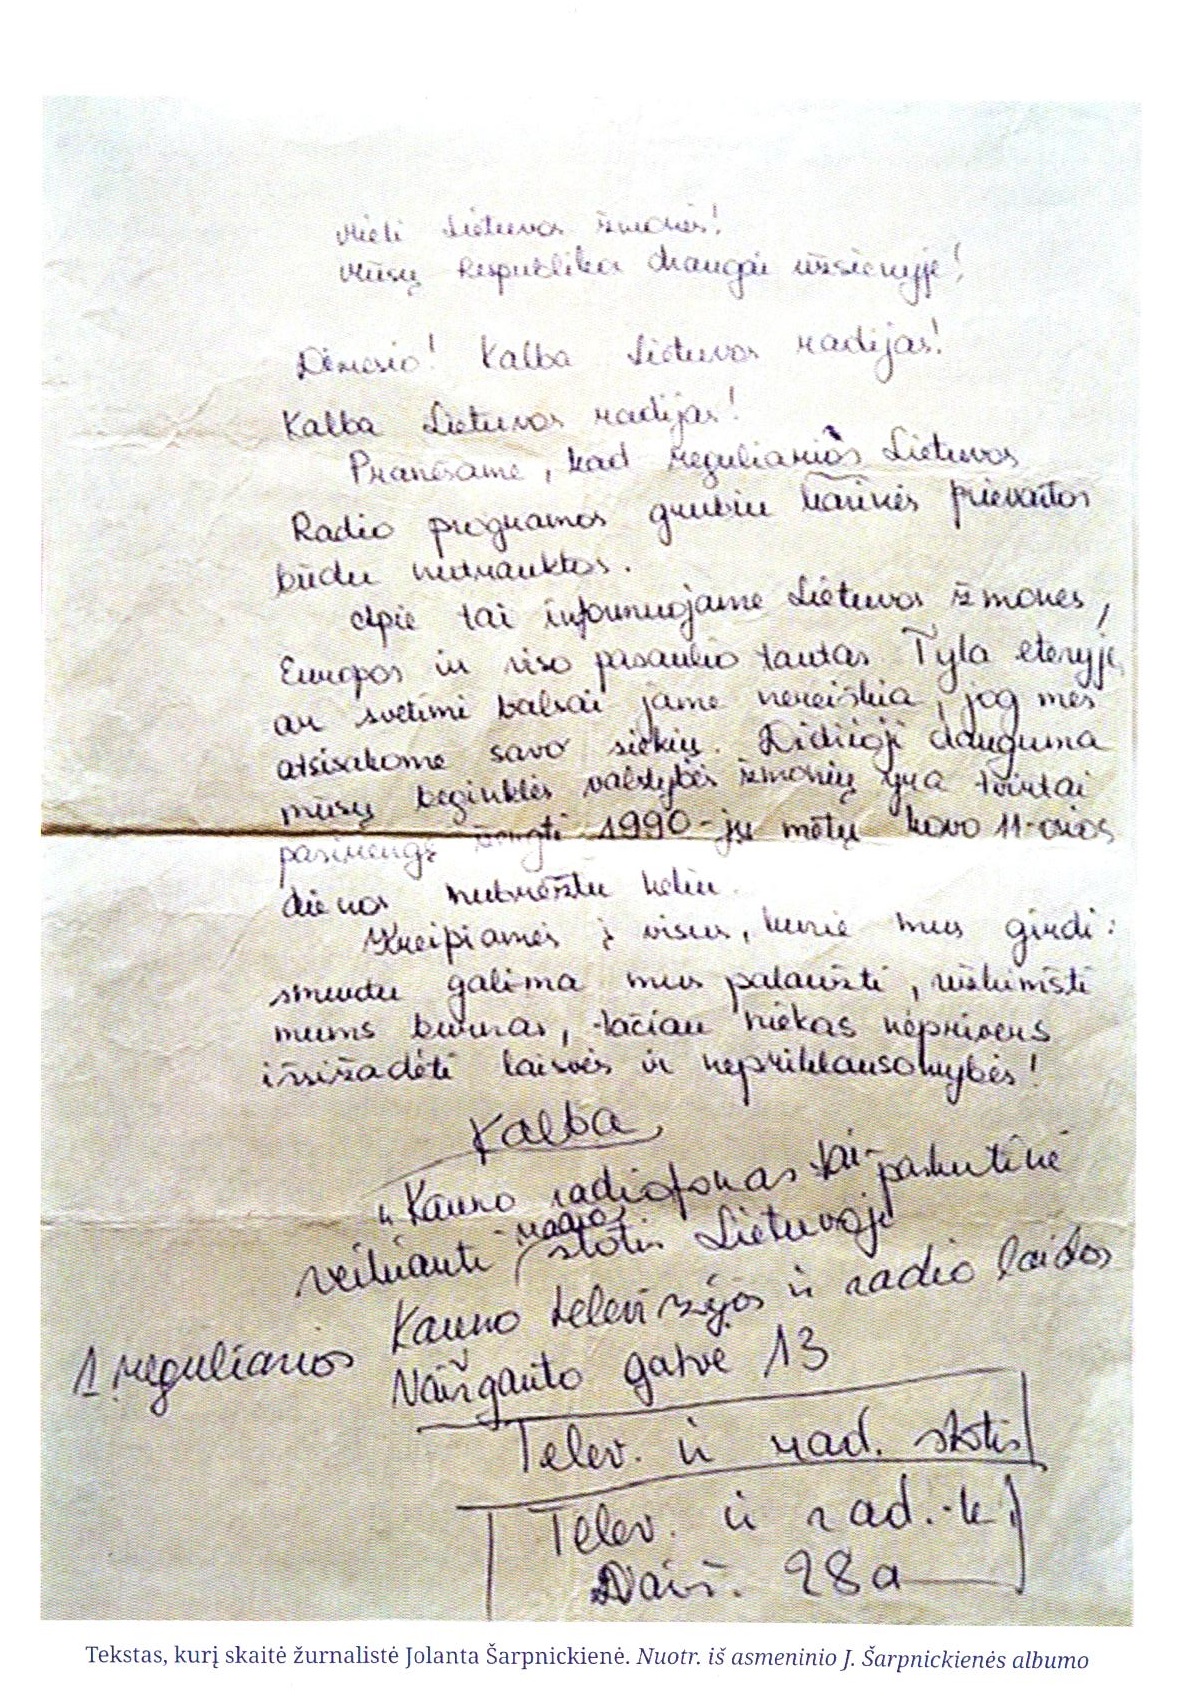 Mieli Lietuvos žmonės!
Mūsų Respublikos draugai užsienyje!
Dėmesio! Kalba Lietuvos radijas!
Kalba Lietuvos radijas!
Pranešame, kad reguliarios Lietuvos
Radio programos grubiu karinės prievartos
būdu nutrauktos.
Apie tai informuojame Lietuvos žmones,
Europos ir viso pasaulio tautas. Tyla eteryje,
ar svetimi balsai jame nereiškia, jog mes
atsisakome savo siekių. Didžioji dauguma
mūsų beginklės valstybės žmonių yra tvirtai
pasirengę žengti 1990-jų metų kovo 11-osios
dienos nubrėžtu keliu.
Kreipiamės į visus, kurie mus girdi:
smurtu galima mus palaužti, užkimšti
mums burnas, tačiau niekas neprivers
išsižadėti laisvės ir nepriklausomybės!
Kalba
"Kauno radiofonas tai- paskutinė
veikianti radio stotis Lietuvoje
Kauno televizijos ir radio laidos
1. reguliarios
Daižganto gatvė 13
Telev. ir rad. stotis
Telev. ir rad. k.
Daiš. 28a
Tekstas, kurį skaitė žurnalistė Jolanta Šarpnickienė. Nuotr. iš asmeninio J. Šarpnickienės albumo